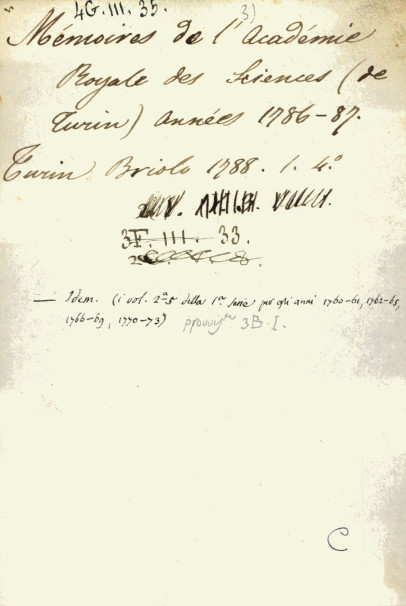 4G. III. 35.
3)
Mémoires de l'Académie
Royale des Sciences (de
Turin) Années 1786-87.
Turin Briolo 1788. 1. 4.º
3F. III. 33.
— Idem. (i vol. 2ª-5 della 1ª serie per gli anni 1760-61, 1762-65,
1766-69, 1770-73) 3B. I.
C